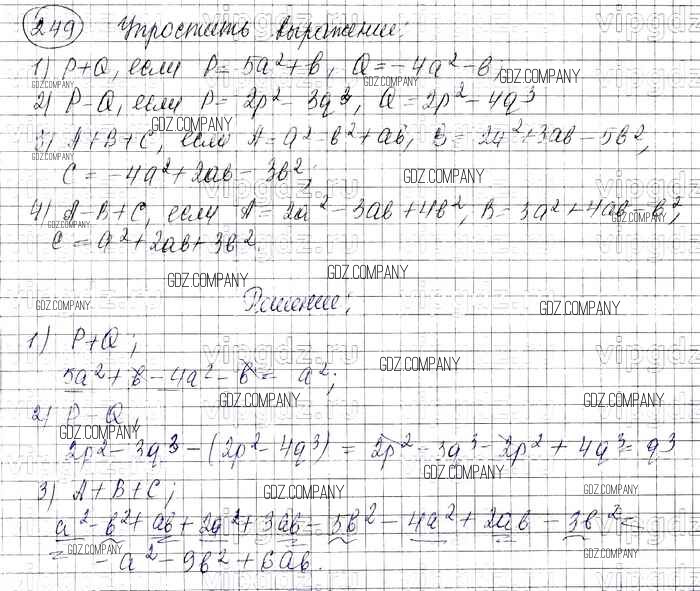 249 Упростить выражение:
1) P+Q, если P = 5a² + b, Q = -4a² - b;
2) P-Q, если P = 2p² - 3q³, Q = 2p² - 4q³
3) A+B+C, если A = a² - b² + ab, B = 2a² + 3ab - 5b²,
C = -4a² + 2ab - 3b²;
4) A-B+C, если A = 2a² - 3ab + 4b², B = 3a² + 4ab - b²,
C = a² + 2ab + 3b².
Решение:
1) P+Q;
5a² + b - 4a² - b = a²;
2) P-Q,
2p² - 3q³ - (2p² - 4q³) = 2p² - 3q³ - 2p² + 4q³ = q³
3) A+B+C;
a² - b² + ab + 2a² + 3ab - 5b² - 4a² + 2ab - 3b² =
- a² - 9b² + 6ab.